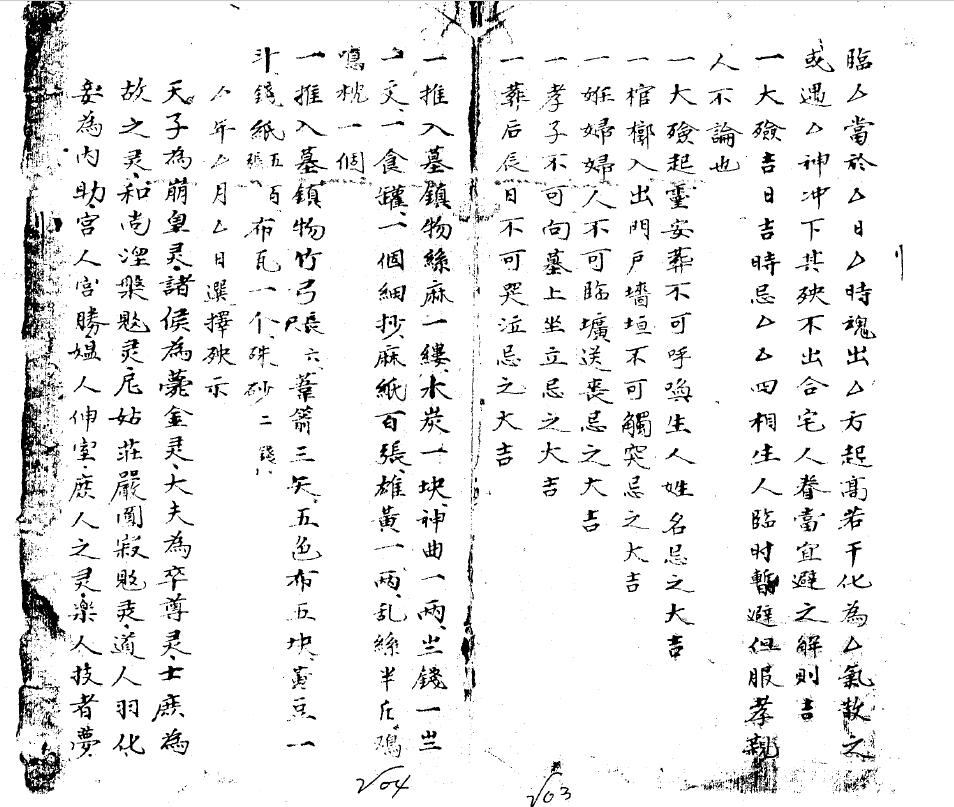 臨厶當於厶日厶時魂出厶方起高若干化為厶氣散之
或遇厶神冲下其殃不出合宅人眷當宜避之解則吉
一大殮吉日吉時忌厶厶四相生人臨时暫避但服孝親
人不論也
一大殮起靈安葬不可呼喚生人姓名忌之大吉
一棺槨入出門戸墻垣不可觸突忌之大吉
一姙婦婦人不可臨壙送喪忌之大吉
一孝子不可向墓上坐立忌之大吉
一葬后辰日不可哭泣忌之大吉
一推入墓鎮物絲麻一縷、木炭一块、神曲一两、 錢一
文、一食罐、一個細抄麻紙百張、雄黃一两、乱絲半斤、鸡
鳴枕一個、
一推入墓鎮物竹弓張六葦箭三矢、五色布五块、黃豆一
斗錢紙五百張布瓦一个、硃砂二錢、
厶年厶月厶日選擇殃示
天子為崩皇灵、諸侯為薨金灵、大夫為卒尊灵、士庶為
故之灵、和尚涅槃 灵、尼姑莊嚴圓寂 灵、道人羽化
妾為内助、宮人宮勝、媪人伸室、庶人之灵、樂人技者夢、
√04
√03